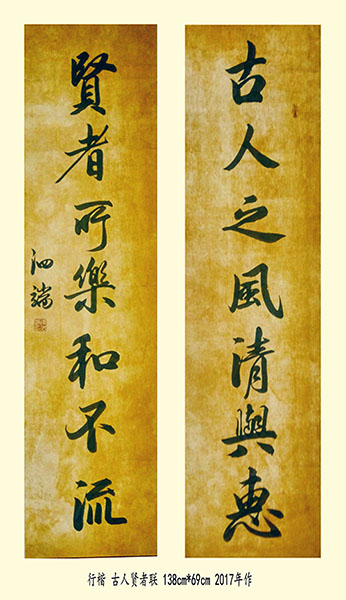 古人之風清與惠
賢者所樂和不流
泗端
行楷 古人贤者联 138cm*69cm 2017年作